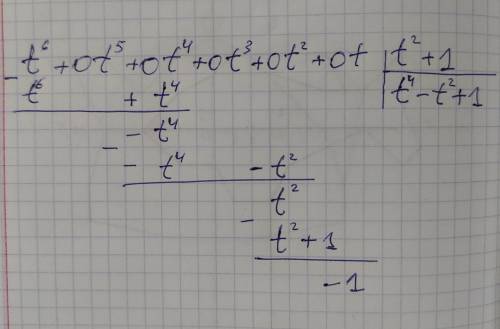 - t⁶ + 0t⁵ + 0t⁴ + 0t³ + 0t² + 0t | t² + 1
t⁶ + t⁴ | t⁴ - t² + 1
- - t⁴
- t⁴ - t²
- t²
t² + 1
- 1